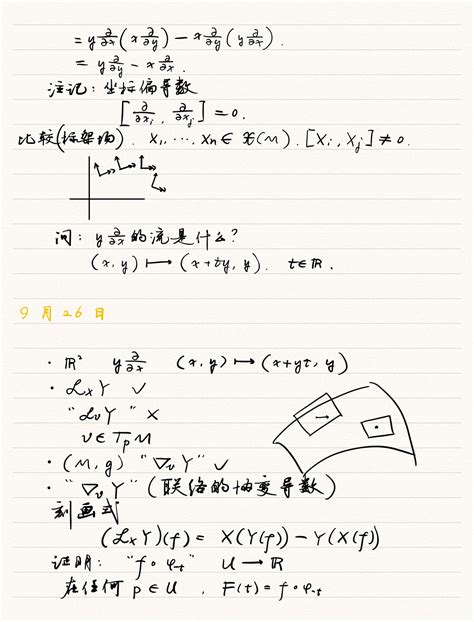 = y ∂/∂x (x ∂/∂y) − x ∂/∂y (y ∂/∂x).
= y ∂/∂y − x ∂/∂x.
注记: 坐标偏导数
[∂/∂xᵢ, ∂/∂xⱼ] = 0.
比较(标架场). X₁, ⋯, Xₙ ∈ 𝔛(M). [Xᵢ, Xⱼ] ≠ 0.
问: y ∂/∂x 的流是什么?
(x, y) ⟼ (x + ty, y). t ∈ ℝ.
9月26日
· ℝ² y ∂/∂x (x, y) ⟼ (x + yt, y)
· ℒ_X Y ✓
"ℒ_v Y" ×
v ∈ T_p M
· (M, g) "∇_v Y" ✓
· "∇_v Y" (联络的协变导数)
刻画式
(ℒ_X Y)(f) = X(Y(f)) − Y(X(f))
证明: "f ∘ φ_{-t}" U → ℝ
在任何 p ∈ U, F(t) = f ∘ φ_{-t}